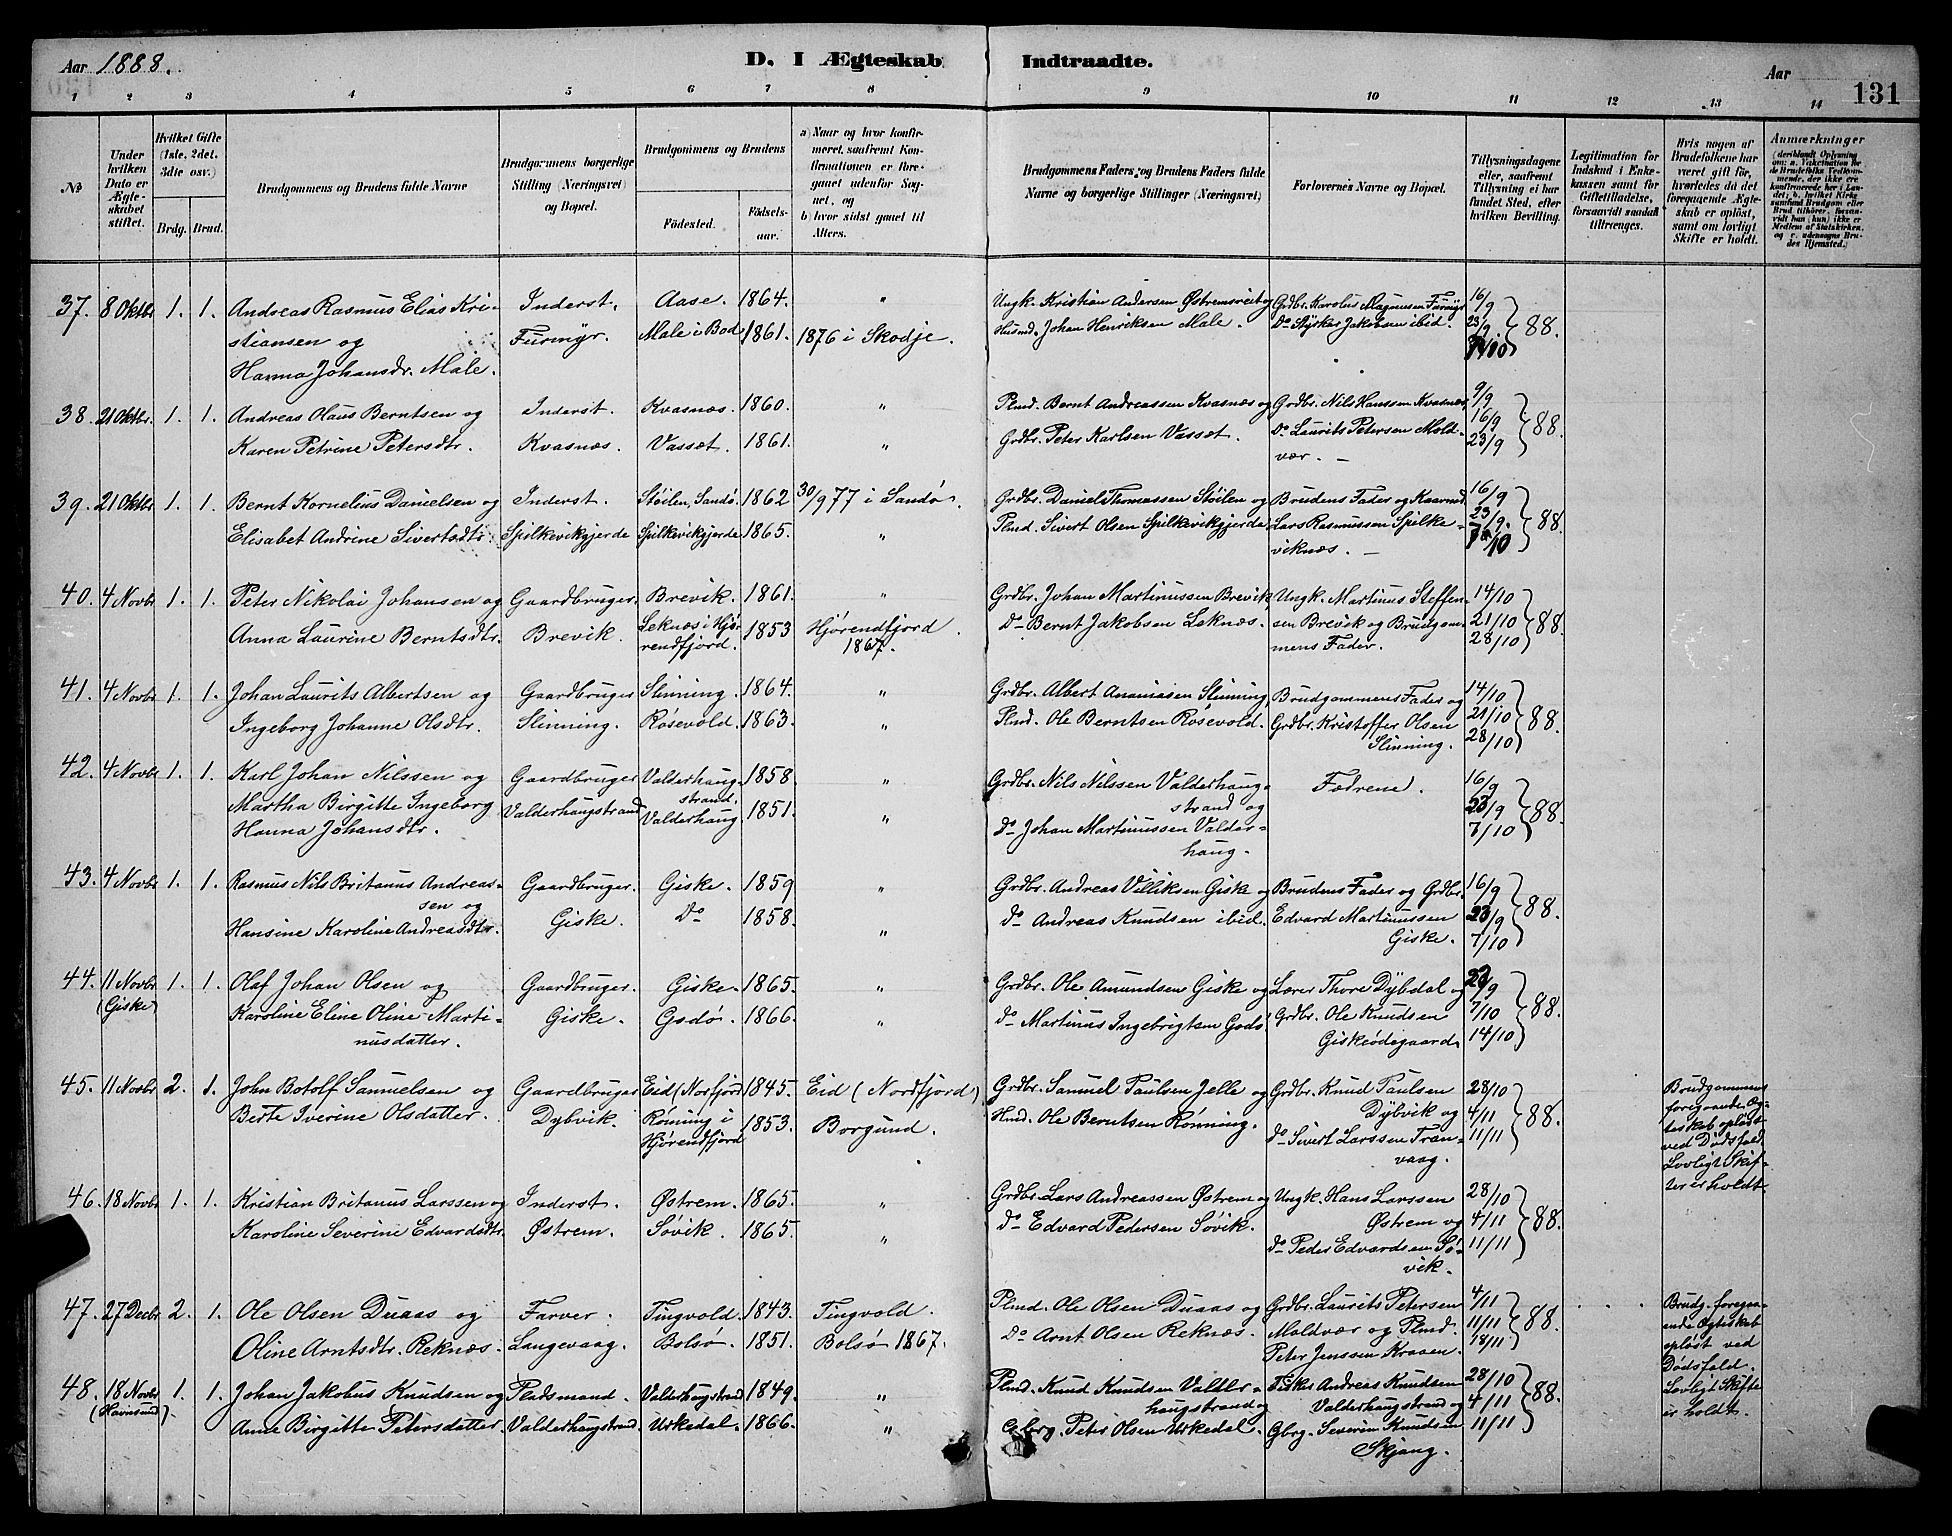 Aar 1888.
D. I Ægteskab Indtraadte.
Aar
131
1 2 3 4 5 6 7 8 9 10 11 12 13 14
№
Under hvilken Dato er Ægteskabet stiftet.
Hvilket Gifte (1ste, 2det, 3die osv.)
Brdg. Brud.
Brudgommens og Brudens fulde Navne
Brudgommens borgerlige Stilling (Næringsvei) og Bopæl.
Brudgommens og Brudens
Födested.
Födselsaar.
a) Naar og hvor konfirmeret, saafremt Konfirmationen er foregaaet udenfor Sognet, og
b) hvor sidst gaaet til Alters.
Brudgommens Faders og Brudens Faders fulde Navne og borgerlige Stillinger (Næringsvei)
Forlovernes Navne og Bopæl.
Tillysningsdagene eller, saafremt Tillysning ei har fundet Sted, efter hvilken Bevilling.
Legitimation for Indskud i Enkekassen samt for Giftetilladelse, forsaavidt saadan tiltrænges.
Hvis nogen af Brudefolkene har været gift för, hvorledes da det foregaaende Ægteskab er oplöst, samt om lovligt Skifte er holdt.
Anmærkninger
(deriblandt Oplysning om: a. Vakcination for de Brudefolks Vedkommende, der ikke ere konfirmerede her i Landet; b. hvilket Kirkesamfund Brudgom eller Brud tilhörer, forsaavidt han (hun) ikke er Medlem af Statskirken, og c. udensogns Brudes Hjemsted.)
37. 8 Oktbr 1. 1. Andreas Rasmus Elias Kri- Inderst. Aase. 1864. " Ungk. Kristian Andersen Østremsreit og Grdbr. Karolus Magnussen Furmyr 16/9
stiansen og Furmyr. Male i Bod 1861. 1876 i Skodje. Husmd. Johan Henriksen Male. Do Styrker Jakobsen ibid. 23/9 88.
Hanna Johansdr. Male.
38. 21 Oktbr. 1. 1. Andreas Olaus Berntsen og Inderst. Kvasnæs. 1860. " Plmd. Bernt Andreassen Kvasnæs og Grdbr. Nils Hanssen Kvasnæs, 9/9
Karen Petrine Petersdtr. Kvasnæs. Vasset. 1861. " Grdbr. Peter Karlsen Vasset. Do Laurits Petersen Mold- 16/9 88.
vær. — 23/9
39. 21 Oktbr 1. 1. Bernt Kornelius Danielsen og Inderst. Støilen, Sandø. 1862 30/9 77 i Sandø. Grdbr. Daniel Thomassen Støilen og Brudens Fader og Kaarmd. 16/9
Elisabet Andrine Sivertsdtr. Spilkevikgjerde Spilkevikgjerde 1865. " Plmd. Sivert Olsen Spilkevikgjerde, Lars Rasmussen Spilke- 23/9. 88.
viknæs. — 7/10
40. 4 Novbr 1. 1. Peter Nikolai Johansen og Gaardbruger. Brevik. 1861. " Grdbr. Johan Martinussen Brevik, Ungk. Martinus Steffen- 14/10
Anna Laurine Berntsdtr. Brevik. Leknæs i Hjø- 1853 Hjørendfjord Do Bernt Jakobsen Leknæs. sen Brevik og Brudgom- 21/10 88.
rendfjord. 1867. mens Fader. 28/10
41. 4 Novbr 1. 1. Johan Laurits Albertsen og Gaardbruger Slinning. 1864. " Grdbr. Albert Ananiasen Slinning, Brudgommens Fader og 14/10
Ingeborg Johanne Olsdtr. Slinning. Røsevold. 1863. " Plmd. Ole Berntsen Røsevold. Grdbr. Kristoffer Olsen 21/10 88.
Slinning. 28/10
42. 4 Novbr 1. 1. Karl Johan Nilssen og Gaardbruger Valderhaug- 1858. " Grdbr. Nils Nilssen Valderhaug- Fædrene. 16/9
Martha Birgitte Ingeborg Valderhaugstrand strand. strand og 23/9 88.
Hanna Johansdtr. Valderhaug 1851. " Do Johan Martinussen Valder- 7/10
haug.
43. 4 Novbr 1. 1. Rasmus Nils Britanus Andreas- Gaardbruger. Giske. 1859 " Grdbr. Andreas Villiksen Giske og Brudens Fader og Grdbr. 16/9
sen og Giske. Do 1858. do Andreas Knudsen ibid. Edvard Martinussen 23/9 88.
Hansine Karoline Andreasdtr. " Giske. 7/10
44. 11 Novbr 1. 1. Olaf Johan Olsen og Gaardbruger. Giske. 1865. " Grdbr. Ole Amundsen Giske og Lærer Thore Dybdal og 23/9
(Giske) Karoline Eline Oline Marti- Giske. Godø. 1866. " do Martinus Ingebrigtsen Godø Grdbr. Ole Knudsen 7/10 88.
nusdatter. Giskeødegaard. 14/10
45. 11 Novbr 2. 1. John Botolf Samuelsen og Gaardbruger Eid (Norfjord 1845. Eid (Nordfjord) Grdbr. Samuel Paulsen Jelle og Grdbr. Knud Paulsen 28/10 Brudgommens
Berte Iverine Olsdatter. Dybvik. Rønning i 1853. Borgund. Hmd. Ole Berntsen Rønning. Dybvik og 4/11 88. foregaaende Æg-
Hjørendfjord do Sivert Larssen Tran- 11/11 teskab opløst
vaag. ved Dødsfald.
Lovligt Skif-
te er holdt.
46. 18 Novbr 1. 1. Kristian Britanus Larssen og Inderst. Østrem. 1865. " Grdbr. Lars Andreassen Østrem og Ungk. Hans Larssen 28/10
Karoline Severine Edvardsdtr. Østrem. Søvik. 1865. " do Edvard Petersen Søvik. Østrem og 4/11 88.
do Peder Edvardsen Sø- 11/11
vik.
47. 27 Decbr 2. 1. Ole Olsen Duaas og Farver. Tingvold. 1843. Tingvold. Plmd. Ole Olsen Duaas og Grdbr. Laurits Petersen 4/11 Brudg. forega-
Oline Arntsdtr. Reknæs. Langevaag. Bolsø. 1851. Bolsø 1867. Do Arnt Olsen Reknæs. Moldvær og Plmd. 11/11 88. ende Ægteskab
Peter Jenssen Kraaen. 18/11 opløst ved
Dødsfald.
Lovligt Skifte
er holdt.
48. 18 Novbr 1. 1. Johan Jakobus Knudsen og Pladsmand. Valderhaugstrand 1849. " Plmd. Knud Knudsen Valder- Fisker Andreas Knudsen 28/10
(Havnsund) Anne Birgitte Petersdatter Valderhaugstrand Urkedal. 1866. " haugstrand og Valderhaugstrand og 4/11 88.
Gbrg. Peter Olsen Urkedal. Gbrg. Severin Knudsen 11/11
Skjong.